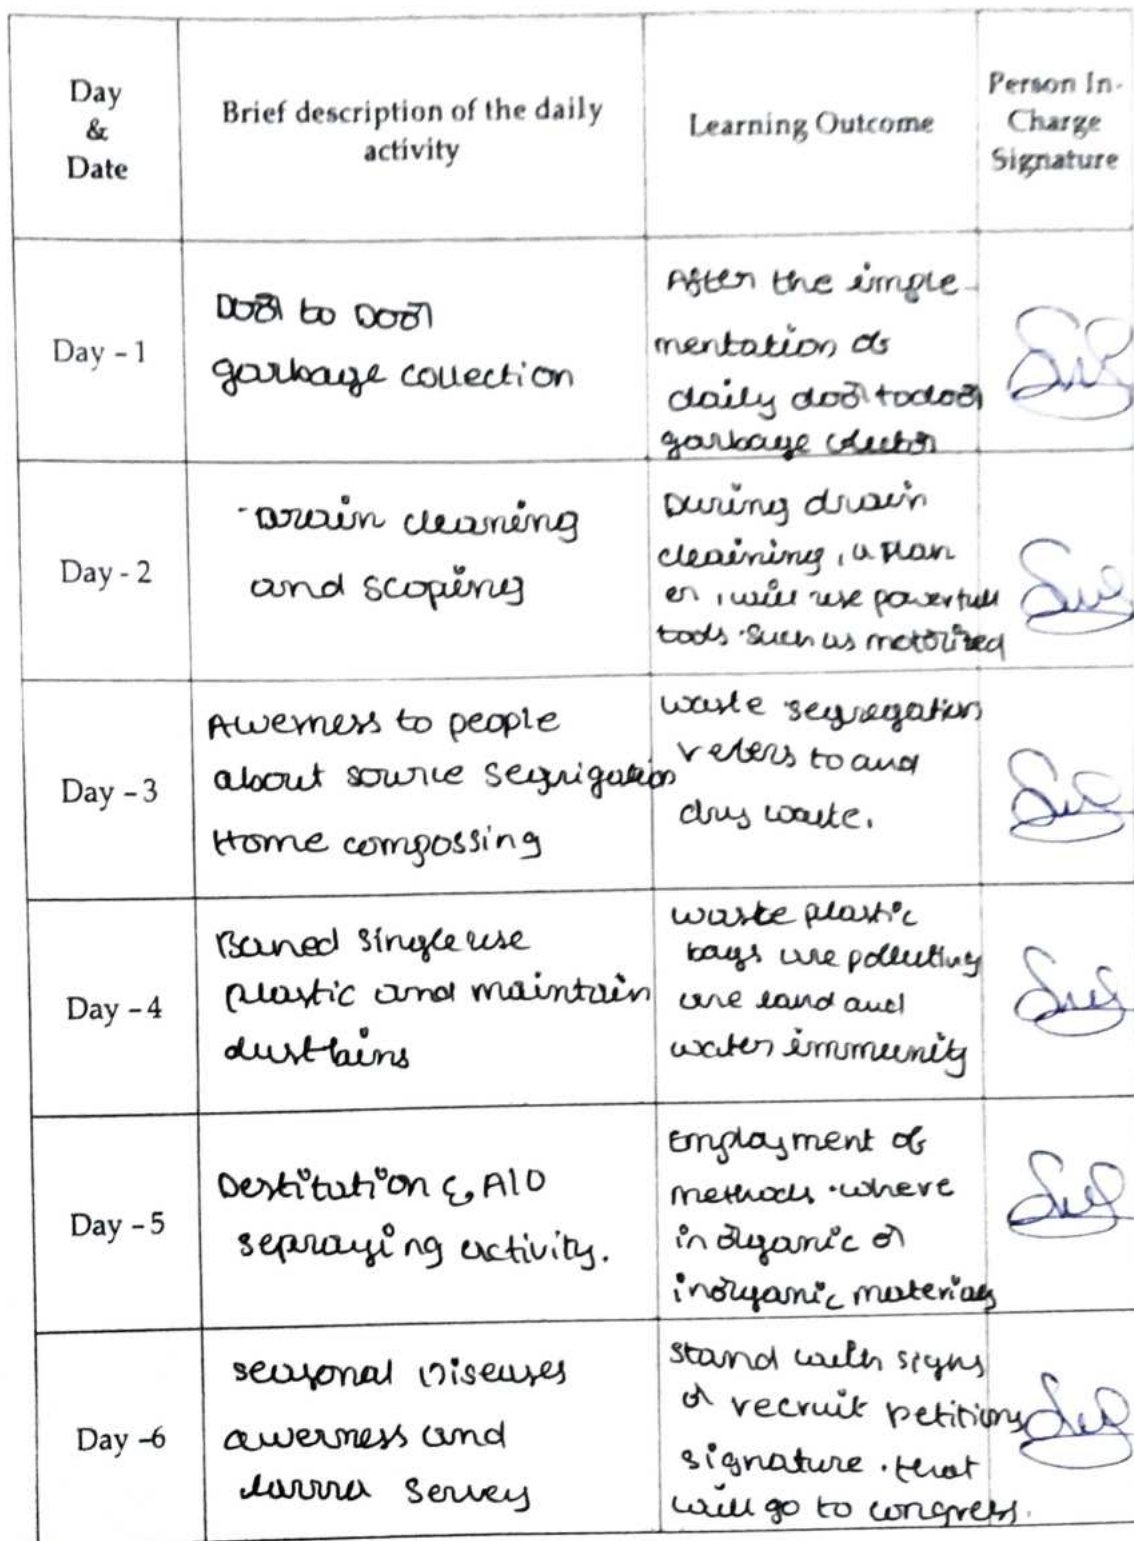 Day
&
Date
Brief description of the daily
activity
Learning Outcome
Person In-
Charge
Signature
Day - 1
Door to Door
garbage collection
After the imple-
mentation of
daily door todoor
garbage
Day - 2
Drain cleaning
and scoping
During drain
cleaining, a plan
er, will use powerfull
tools such as motorized
Day - 3
Awerness to people
about source segrigation
Home compossing
waste segregation
refers to and
dry waste.
Day - 4
Baned single use
plastic and maintain
dustbins
waste plastic
bags are polluting
are land and
water immunity
Day - 5
Destitution & A10
sepraying activity.
Employment of
methods where
in organic or
inorganic materials
Day -6
seasonal Diseases
awerness and
larva Servey
stand with signs
or recruit petitions
signature. that
will go to congress.